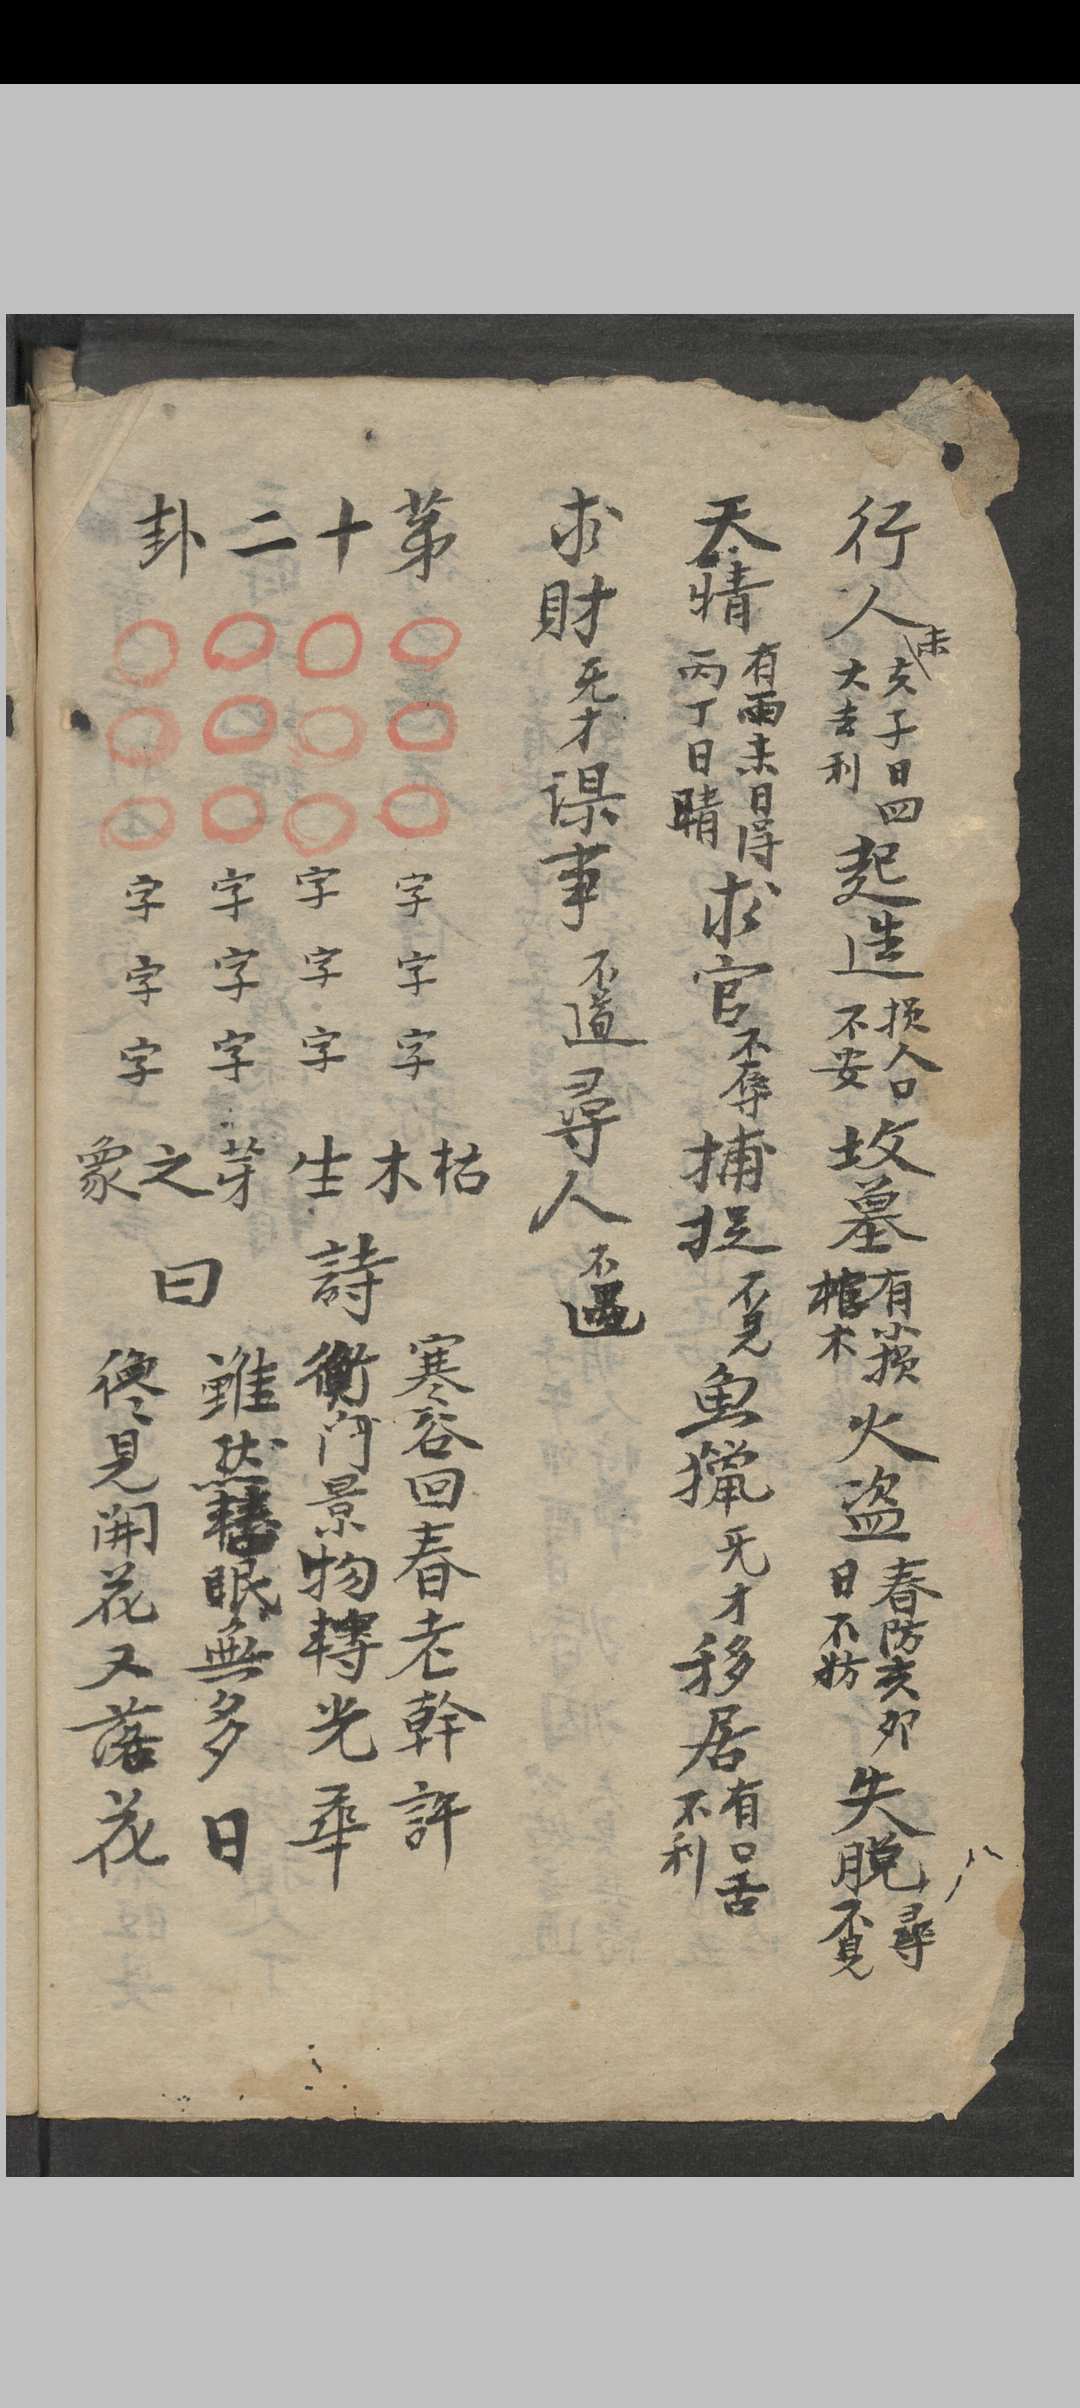 行人未亥子日四大吉利起造損人口不安坟墓有小損棺木火盗春防亥卯日不妨失脱尋不見
天晴有雨未日得丙丁日晴求官不辱捕捉不見魚獵旡才移居有口舌不利
求財旡才謀事不遂尋人不遇
第十二卦
字字字
字字字
字字字
字字字
枯木生芽之象
詩曰
寒谷回春老幹許
衡門景物轉光華
雖然眼無多日
終見開花又落花